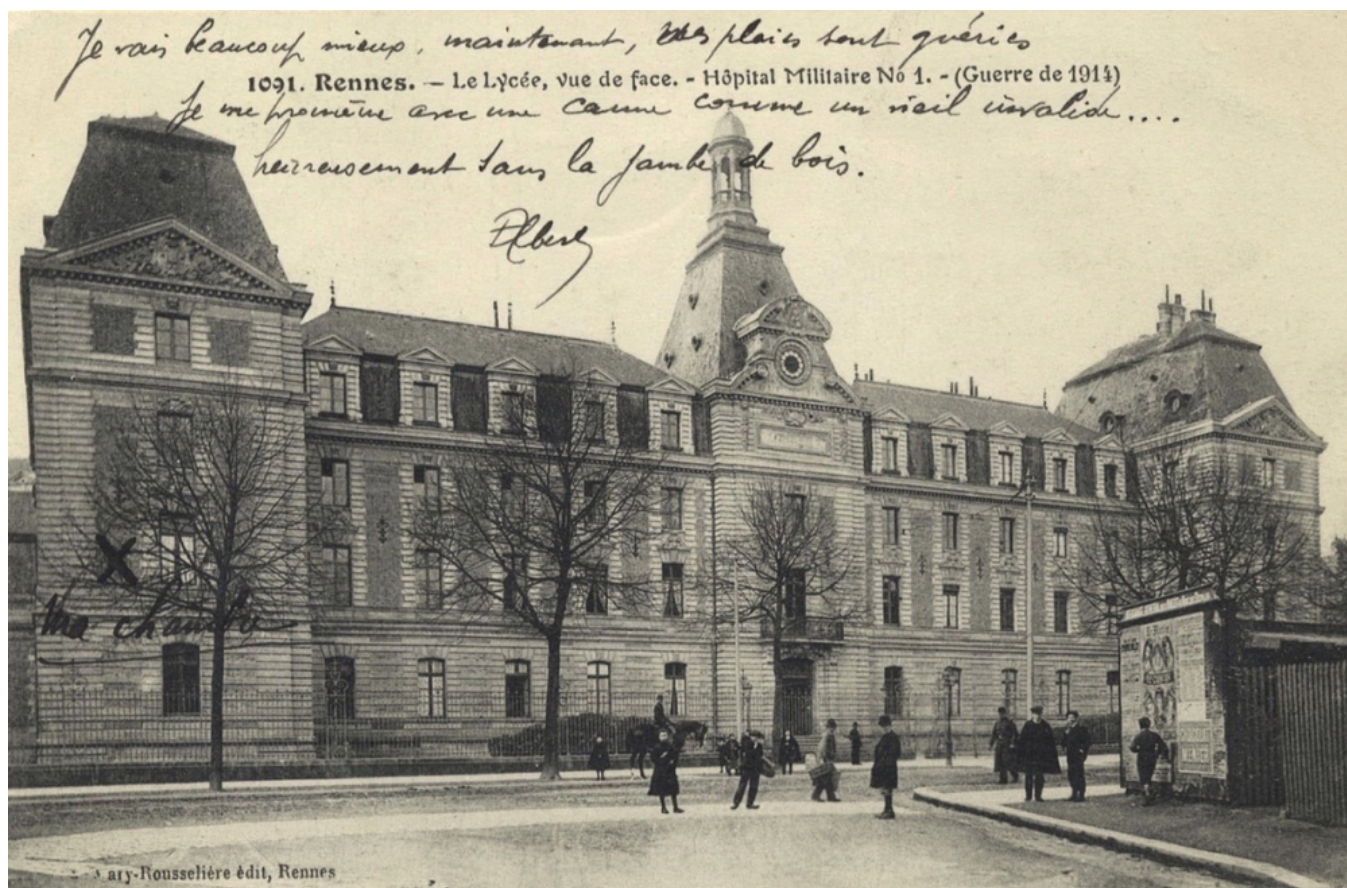 Je vais beaucoup mieux, maintenant, mes plaies sont guéries
1091. Rennes. – Le Lycée, vue de face. - Hôpital Militaire No 1. - (Guerre de 1914)
Je me promène avec une canne comme un vieil invalide....
heureusement sans la jambe de bois.
Albert
Ma chambre
ary-Rousselière édit, Rennes